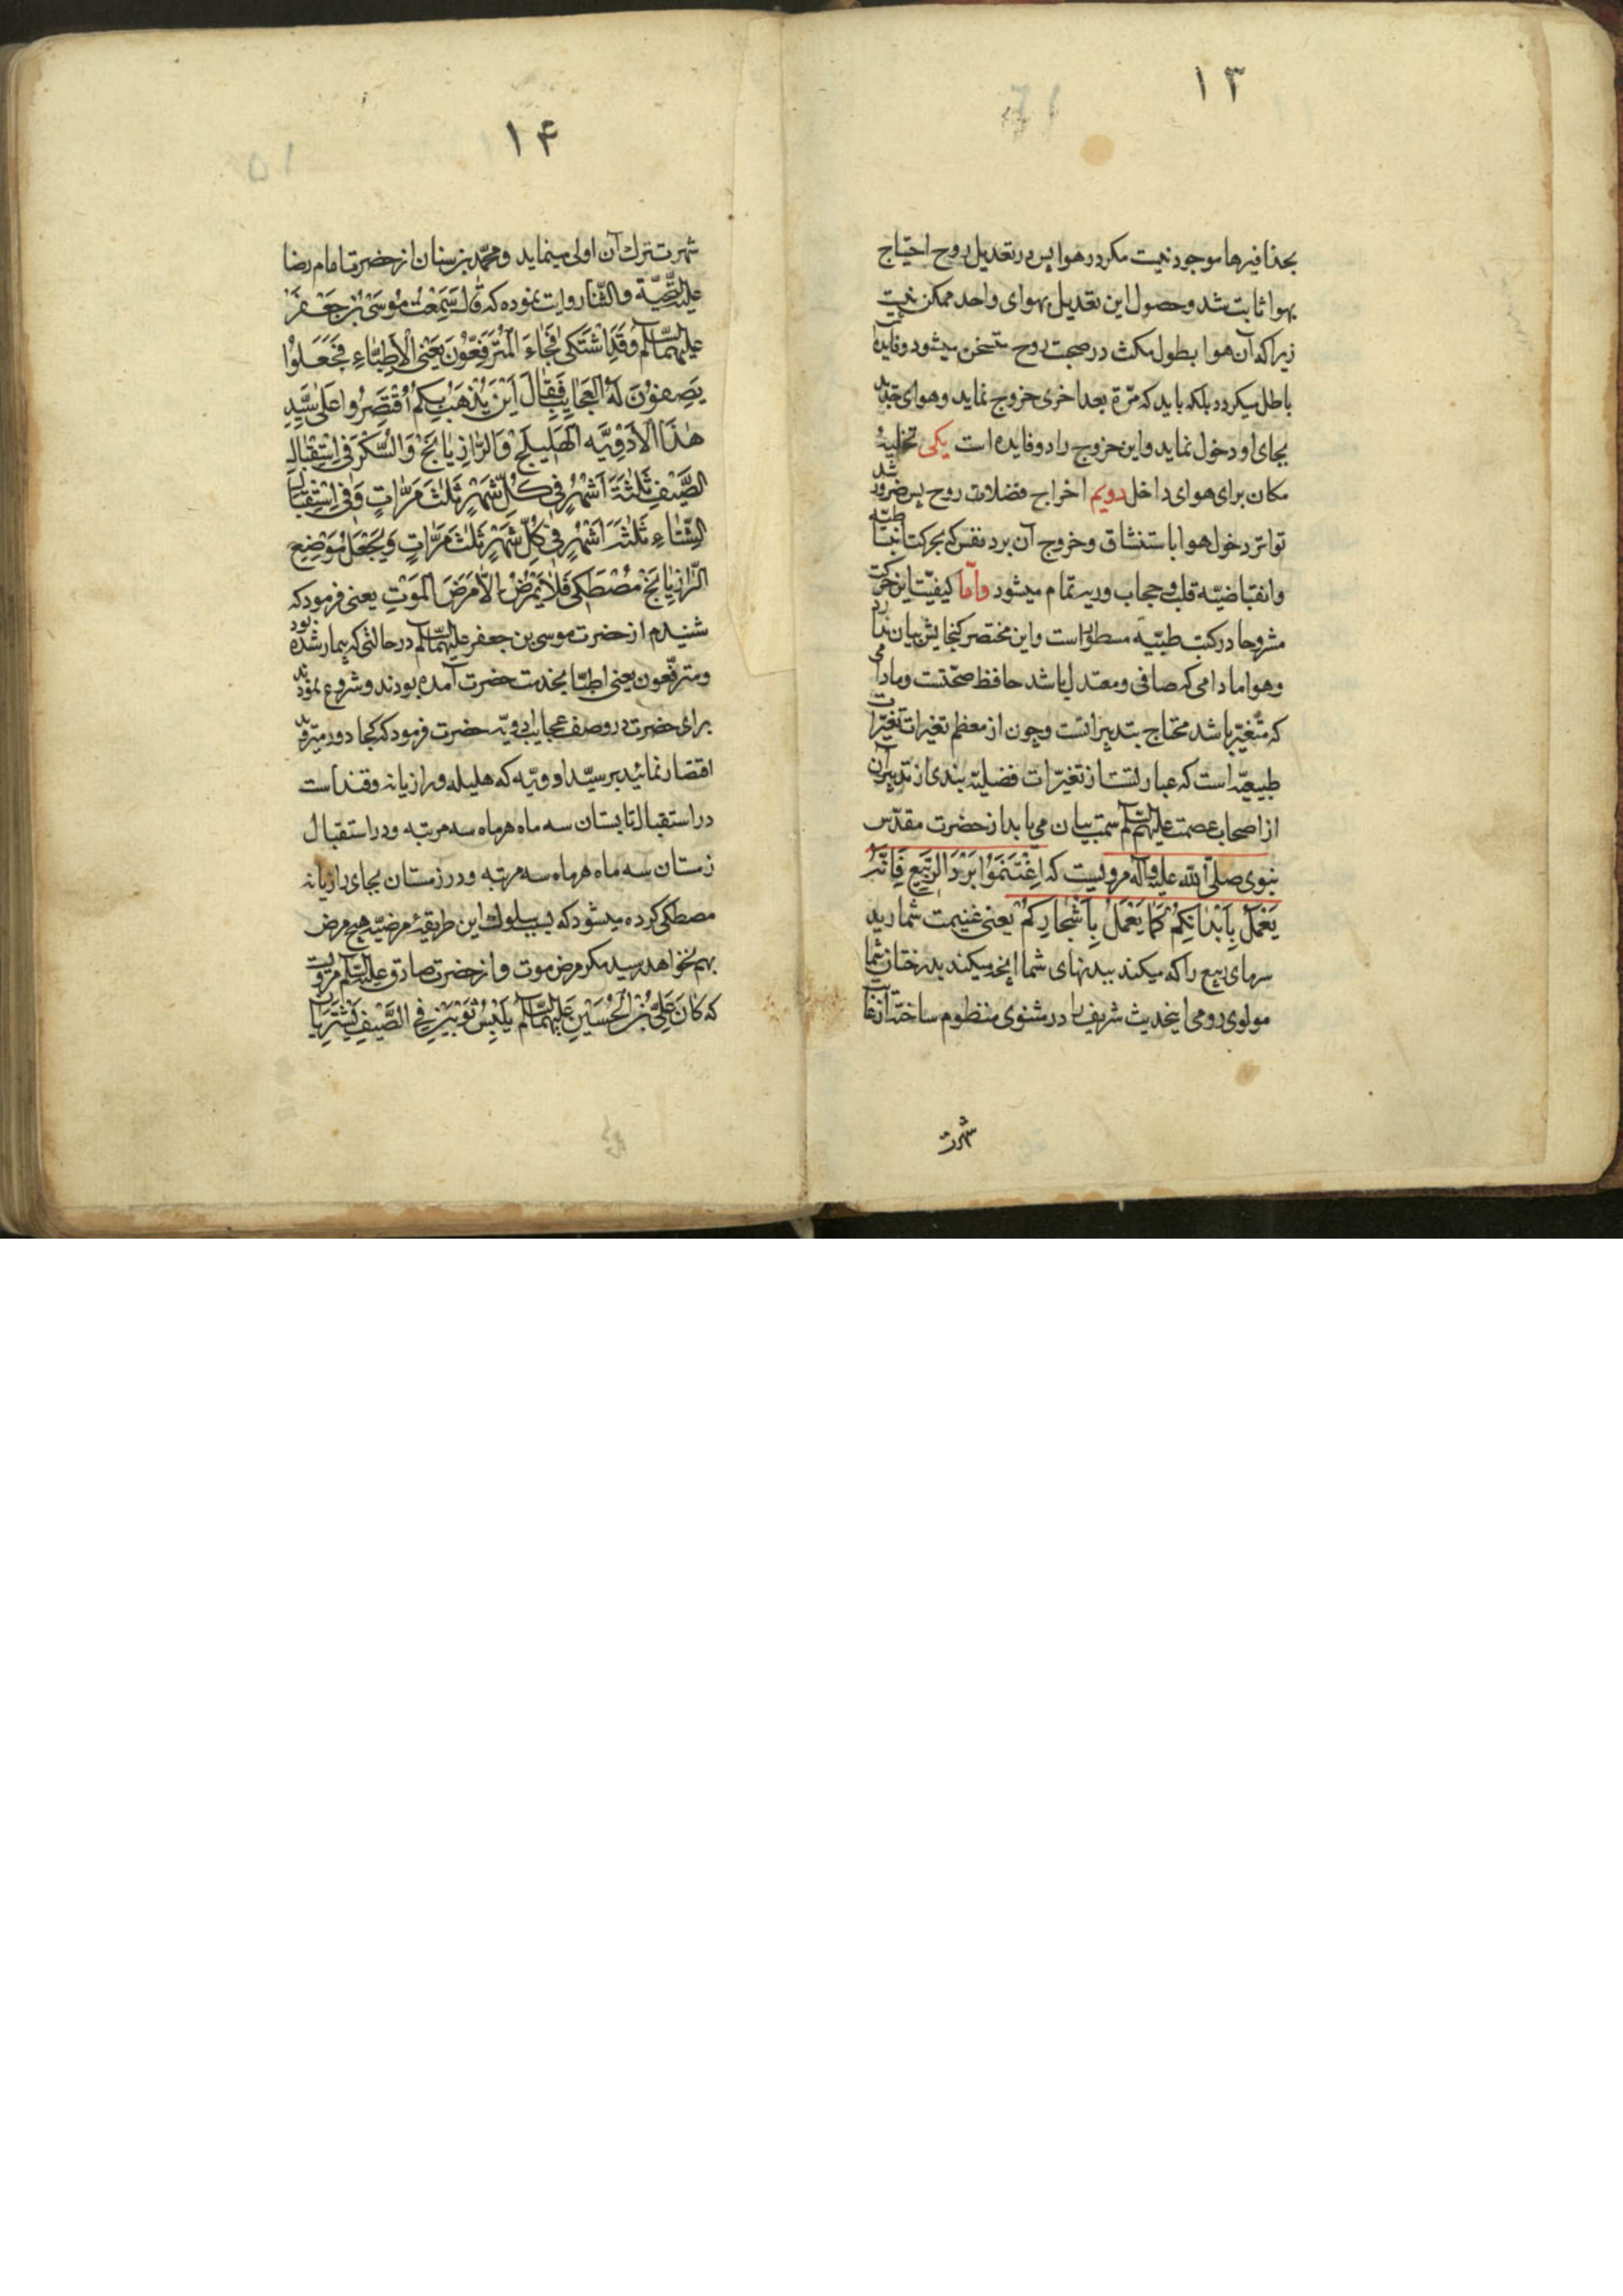 ۱۳
بحذافیرها موجود نیست مکر در هوا پس در تعدیل روح احتیاج
بهوا ثابت شد و حصول این تعدیل بهوای واحد ممکن نیست
زیرا که آن هوا بطول مکث در صحبت روح متسخن میشود و فایده آن
باطل میکردد بلکه باید که مرّة بعد اخری خروج نماید و هوای جدید
بجای او دخول نماید و این خروج را دو فایده است یکی تخلیهٔ
مکان برای هوای داخل دویم اخراج فضلات روح پس ضرور شد
تواتر دخول هوا باستنشاق و خروج آن برد نفس که بحرکت انبساطیّه
وانقباضیّه قلب و حجاب و ریه تمام میشود وامّا کیفیّت این حرکت
مشروحا در کتب طبیّه مسطور است و این مختصر کنجایش بیان ندارد
و هوا مادامی که صافی و معتدل باشد حافظ صحّتست و مادامی
که متغیّر باشد محتاج بتدبیر انست و چون از معظم تغیرات تغیّرات
طبیعیّه است که عبارتست از تغیّرات فصلیّه بندی از تدبیر آن
از اصحاب عصمت علیهم السّلم سمت بیان می یابد از حضرت مقدّس
نبوی صلّی اللّه علیه وآله مرویست که اِغْتَنِمُوا بَرْدَ الرَّبِیعِ فَاِنَّهُ
یَعْمَلُ بِاَبْدَانِکُمْ کَمَا یَعْمَلُ بِاَشْجَارِکُمْ یعنی غنیمت شمارید
سرمای ربیع را که میکند ببدنهای شما انچه میکند بدرختان شما
مولوی رومی اینحدیث شریف را در مثنوی منظوم ساخته از غایت
شهرت
۱۴
شهرت ترك آن اولی مینماید و محمّد بن سنان از حضرت امام رضا
علیه التّحیّة والثّنا روایت نموده که قالَ سَمِعْتُ مُوسَی بْنَ جَعْفَرٍ
علیهما السّلم وَقَدِ اشْتَکی فَجَاءَ الْمُتَرَفِّعُونَ یَعْنِی الْاَطِبَّاءِ فَجَعَلُوْا
یَصِفُوْنَ لَهُ الْعَجَایِبَ فَقَالَ اَیْنَ یُذْهَبُ بِکُمْ اُقْتَصِرُوا عَلی سَیِّدِ
هٰذَا الْاَدْوِیَّه الْهَلِیلَجْ وَالرَّازِیَانَجْ وَالسُّکَّرَ فِی اسْتِقْبَالِ
الصَّیْفِ ثَلٰثَةَ اَشْهُرٍ فِی کُلِّ شَهْرٍ ثَلٰثَ مَرَّاتٍ وَفِی اسْتِقْبَالِ
الشِّتَاءِ ثَلٰثَةَ اَشْهُرٍ فِی کُلِّ شَهْرٍ ثَلٰثَ مَرَّاتٍ وَیُجْعَلُ مَوْضِعَ
الرَّازِیَانَجْ مُصْطَکِی فَلَا یَمْرَضُ اِلَّا مَرَضَ الْمَوْتِ یعنی فرمود که
شنیدم از حضرت موسی بن جعفر علیهما السّلم در حالتی که بیمار شده بود
و مترفّعون یعنی اطبّا بخدمت حضرت آمده بودند و شروع نمودند
برای حضرت در وصف عجایب ادویّه حضرت فرمود که کجا دور میروید
اقتصار نمائید بر سیّد ادویّه که هلیله و رازیانه و قند است
در استقبال تابستان سه ماه هرماه سه مرتبه و در استقبال
زمستان سه ماه هرماه سه مرتبه و در زمستان بجای رازیانه
مصطکی کرده میشود که بسبب سلوك این طریقهٔ مرضیّه هیچ مرض
بهم نخواهد رسید مکر مرض موت و از حضرت صادق علیه السّلم مرویست
که کَانَ عَلِیُّ بْنُ الْحُسَیْنِ عَلَیْهِمَا السّلم یَلْبَسُ ثَوْبَیْنِ فِی الصَّیْفِ یَشْتَرِیَانِ